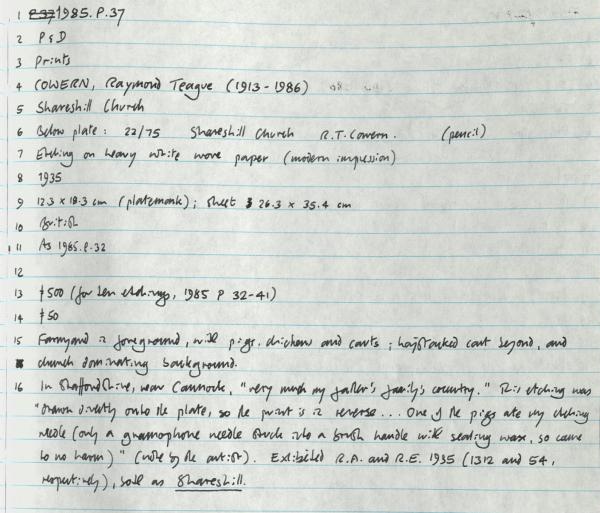 1 P.37 1985.P.37
2 P&D
3 Prints
4 COWERN, Raymond Teague (1913-1986)
5 Shareshill Church
6 Below plate: 22/75 Shareshill Church R.T. Cowern. (pencil)
7 Etching on heavy white wove paper (modern impression)
8 1935
9 12.3 x 18.3 cm (platemark); sheet 26.3 x 35.4 cm
10 British
11 As 1985.P.32
12
13 £500 (for ten etchings, 1985 P 32-41)
14 £50
15 Farmyard in foreground, with pigs, chickens and carts; haystacked cart beyond, and
church dominating background.
16 In Staffordshire, near Cannock, "very much my father's family's country." This etching was
"drawn directly onto the plate, so the print is in reverse... One of the pigs ate my etching
needle (only a gramophone needle stuck into a brush handle with sealing wax, so came
to no harm)" (note by the artist). Exhibited R.A. and R.E. 1935 (1312 and 54,
respectively), sold as Shareshill.